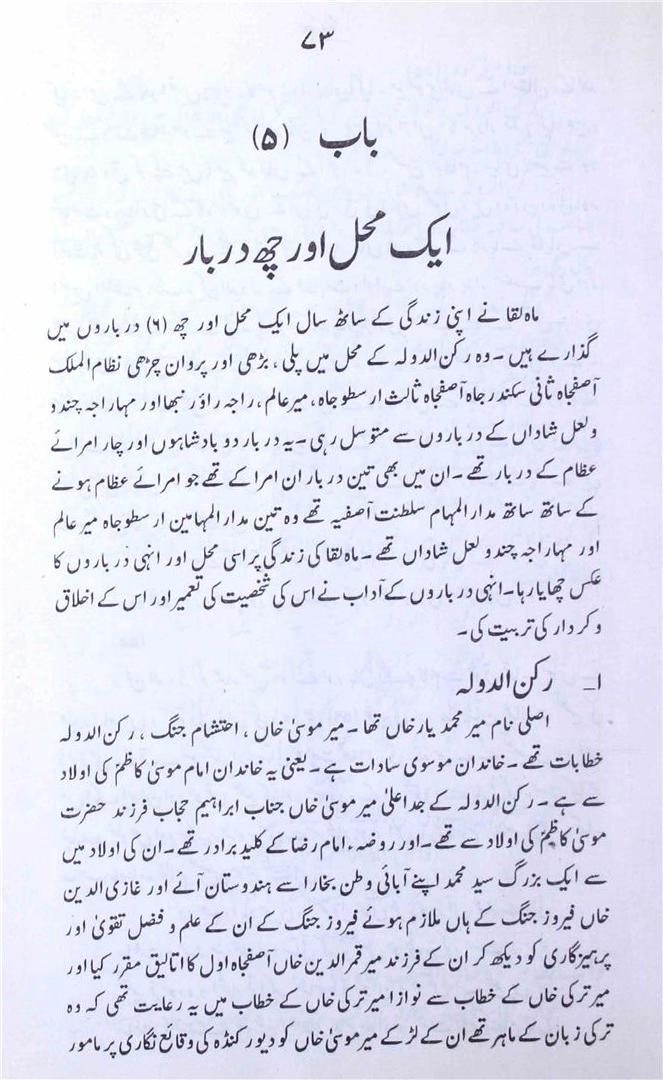 ۷۳
باب (۵)
ایک محل اور چھ دربار
ماہ لقا نے اپنی زندگی کے ساٹھ سال ایک محل اور چھ (۶) درباروں میں
گذارے ہیں ۔ وہ رکن الدولہ کے محل میں پلی ، بڑھی اور پروان چڑھی نظام الملک
آصفجاہ ثانی سکندر جاہ آصفجاہ ثالث ارسطو جاہ ، میر عالم ، راجہ راؤ رنبھا اور مہاراجہ چندو
ولعل شاداں کے درباروں سے متوسل رہی ۔ یہ دربار دو بادشاہوں اور چار امرائے
عظام کے دربار تھے ۔ ان میں بھی تین دربار ان امرا کے تھے جو امرائے عظام ہونے
کے ساتھ ساتھ مدار المہام سلطنت آصفیہ تھے وہ تین مدار المہامین ارسطو جاہ میر عالم
اور مہاراجہ چندو لعل شاداں تھے ۔ ماہ لقا کی زندگی پر اسی محل اور انہی درباروں کا
عکس چھایا رہا ۔ انہی درباروں کے آداب نے اس کی شخصیت کی تعمیر اور اس کے اخلاق
و کردار کی تربیت کی ۔
۱۔ رکن الدولہ
اصلی نام میر محمد یار خاں تھا ۔ میر موسیٰ خاں ، احتشام جنگ ، رکن الدولہ
خطابات تھے ۔ خاندان موسوی سادات ہے ۔ یعنی یہ خاندان امام موسیٰ کاظمؑ کی اولاد
سے ہے ۔ رکن الدولہ کے جد اعلیٰ میر موسیٰ خاں جناب ابراہیم حجاب فرزند حضرت
موسیٰ کاظمؑ کی اولاد سے تھے ۔ اور روضہء امام رضا کے کلید بردار تھے ۔ ان کی اولاد میں
سے ایک بزرگ سید محمد اپنے آبائی وطن بخارا سے ہندوستان آئے اور غازی الدین
خاں فیروز جنگ کے ہاں ملازم ہوئے فیروز جنگ کے ان کے علم و فضل تقویٰ اور
پرہیزگاری کو دیکھ کر ان کے فرزند میر قمر الدین خاں آصفجاہ اول کا اتالیق مقرر کیا اور
میر ترکی خاں کے خطاب سے نوازا میر ترکی خاں کے خطاب میں یہ رعایت تھی کہ وہ
ترکی زبان کے ماہر تھے ان کے لڑکے میر موسیٰ خاں کو دیور کنڈہ کی وقائع نگاری پر مامور